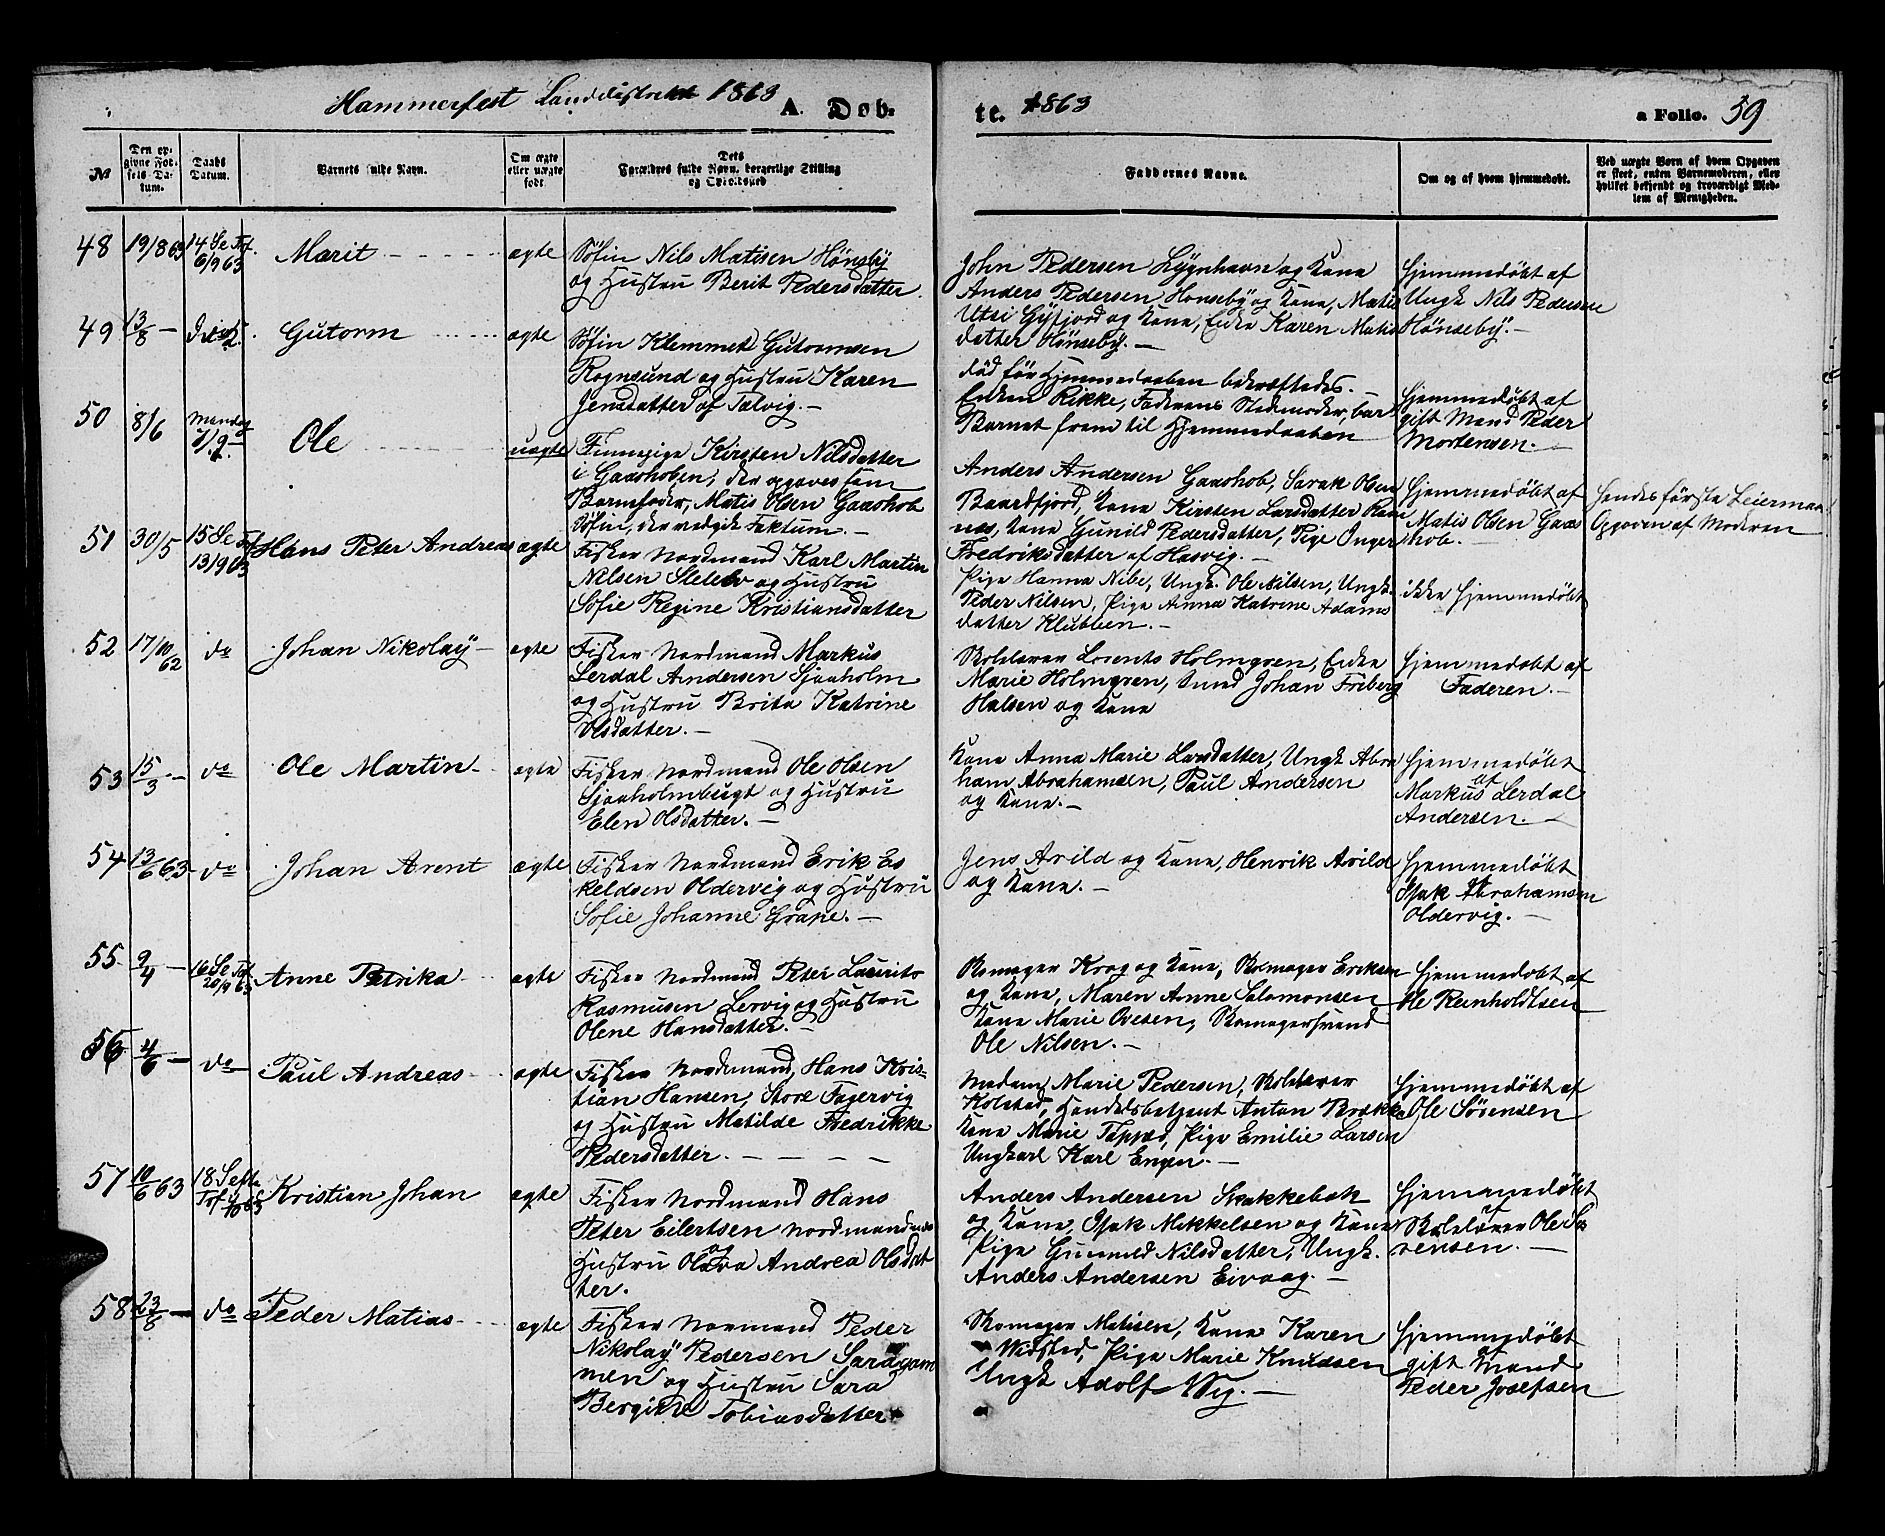 Hammerfest Landdistrikt 1863 A. Døb-
te. 1863 a Folio. 59
№
Den op-
givne Fød-
sels Da-
tum.
Daabs
Datum.
Barnets fulde Navn.
Om ægte
eller uægte
født.
Dets
Forældres fulde Navn, borgerlige Stilling
og Opholdssted
Faddernes Navne.
Om og af hvem hjemmedøbt.
Ved uægte Børn af hvem Opgaven
er skeet, enten Barnemoderen, eller
hvilket bekjendt og troværdigt Med-
lem af Menigheden.
48 19/8 63 14 Se Tref.
6/9 63 Marit ægte Søfin Nils Matisen Hønseby
og Hustru Berit Pedersdatter.
John Pedersen Lygnhavn og Kone
Anders Pedersen Hønseby og Kone, Matis
Utsi Gyfjord og Kone, Enke Karen Matis
datter Hønseby.
Hjemmedøbt af
Ungk Nils Pedersen
Hønseby.
49 13/8 — Gutorm ægte Søfin Klemmet Gutormsen
Rognsund og Hustru Karen
Jensdatter af Talvig.
død før Hjemmedaaben bekræftedes.
Enken Rikke, Faderens Stedmoder, bar
Barnet frem til Hjemmedaaben
Hjemmedøbt af
gift Mand Peder
Mortensen.
50 8/6 Mandag
7/9 Ole uægte Finnepige Kirsten Nilsdatter
i Gaashoben, der opgaves som
Barnefader, Matis Olsen Gaashob
Søfin, der vedgik Faktum.
Anders Andersen Gaashob, Sarak Olsen
Baardfjord, Kone Kirsten Larsdatter Ram
nes, Kone Gunild Pedersdatter, Pige Inger
Fredriksdatter af Hasvig.
Hjemmedøbt af
Matis Olsen Gaas
hob.
Hendes første Leiermaal
Opgaven af Moderen
51 30/5 15 Se Tref
13/9 63 Hans Peter Andreas ægte Fisker Nordmand Karl Martin
Nilsen Slelebo og Hustru
Sofie Regine Kristiansdatter
Pige Hanna Nibe, Ungk. Ole Nilsen, Ungk.
Peder Nilsen, Pige Anna Katrine Adams
datter Klubben.
ikke hjemmedøbt
52 17/10 62 do Johan Nikolay ægte Fisker Nordmand Markus
Lerdal Andersen Sjaaholm
og Hustru Brita Katrine
Olsdatter.
Skolelærer Lorents Holmgren, Enke
Marie Holmgren, Smed Johan Friberg
Halsen og Kone
Hjemmedøbt af
Faderen.
53 15/3 — do Ole Martin ægte Fisker Nordmand Ole Olsen
Sjaaholmbugt og Hustru
Elen Olsdatter.
Kone Anna Marie Larsdatter, Ungk Abra
ham Abrahamsen, Paul Andersen
og Kone.
Hjemmedøbt
af
Markus Lerdal
Andersen.
54 13/6 63 do Johan Arent ægte Fisker Nordmand Erik Es
keldsen Oldervig og Hustru
Sofie Johanne Grape.
Jens Arild og Kone, Henrik Arild
og Kone.
Hjemmedøbt
af
Isak Abrahamsen
Oldervig.
55 9/4 — 16 Se Tref
20/9 63 Anne Petrika ægte Fisker Nordmand Peter Laurits
Rasmusen Lervig og Hustru
Olene Hansdatter.
Skomager Krog og Kone, Skomager Eriksen
og Kone, Maren Anne Salomonsen
Kone Marie Ovesen, Skomagersvend
Ole Nilsen.
Hjemmedøbt af
Ole Reinholdtsen
56 4/6 — do Paul Andreas ægte Fisker Nordmand, Hans Kris-
tian Hansen, Store Fagervig
og Hustru Matilde Fredrikke
Pedersdatter.
Madam Marie Pedersen, Skolelærer
Kolstad, Handelsbetjent Anton Brække
Kone Marie Pige Emilie Larsen
Ungkarl Karl Engen.
Hjemmedøbt af
Ole Sørensen
57 10/6 63 18 Sefte
Tref 4/10 63 Kristian Johan ægte Fisker Nordmand Hans
Peter Eilertsen Nordmandnes
og
Hustru Olava Andrea Olsdat
ter.
Anders Andersen Skakkebak
og Kone, Isak Mikkelsen og Kone
Pige Gunnild Nilsdatter, Ungk.
Anders Andersen Eivaag.
Hjemmedøbt
af
Skolelærer Ole Sø
rensen.
58 23/6 — do Peder Matias ægte Fisker Normand Peder
Nikolay Pedersen Saragam
men og Hustru Sara
Bergitte Tobiasdatter
Skomager Matisen, Kone Karen
Widsted, Pige Marie Knudsen
Ungk Adolf Wig.
Hjemmedøbt
af
gift Mand
Peder Josefsen